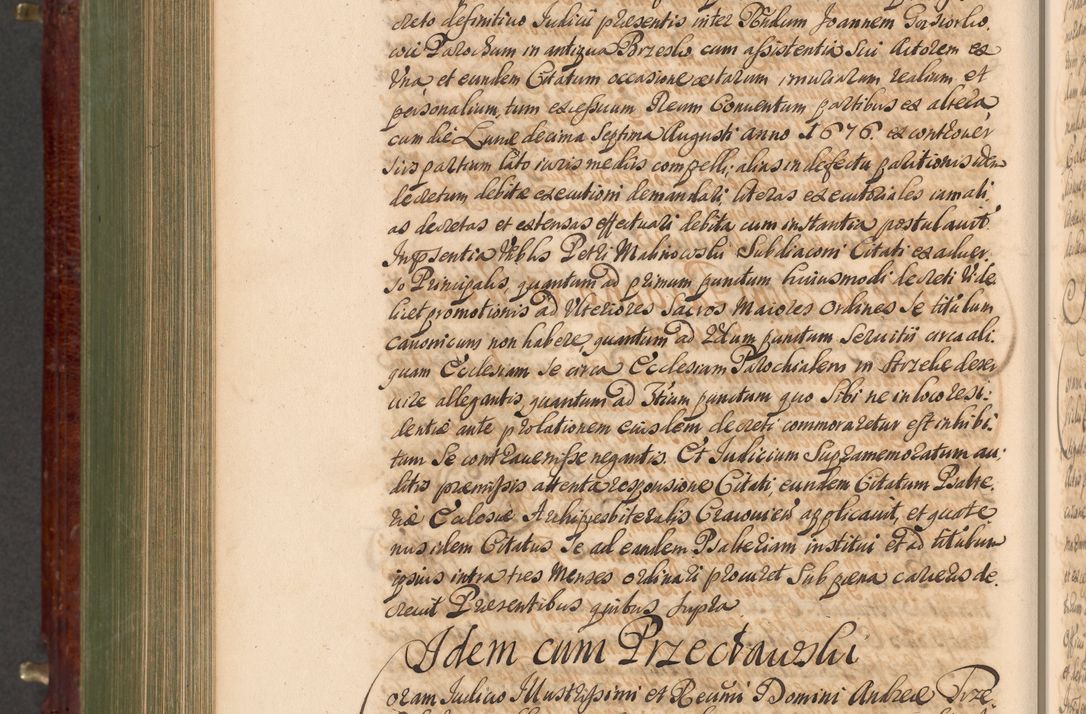 creto definitivo Judicii præsentis inter Pñdum Joannem
wic Parochum in antiqua Brzesko cum assistentia Sui Actorem ex
Vna et eundem Citatum occasione certarum iniuriarum realium et
personalium, tum excessuum Reum Conuentum partibus ex altera
cum die Lunæ decima Septima Augusti anno 1676 ex controuer
siis partium lato iuris mediis compelli, alias in defectu paritionis
decretum debitæ executioni demandari, literas executoriales iam ali,
as decretas et extensas effectuari debita cum instantia postulauit.
In pñsentia Vrblis Petri Malinowski Subdiaconi Citati ex aduer,
so Principalis, quantum ad primum punctum huiusmodi decreti Vide,
licet promotionis ad Vlteriores Sacros Maiores Ordines Se titulum
canonicum non habere, quantum ad 2dum punctum Seruitii circa ali,
quam Ecclesiam Se circa Ecclesiam Parochialem in Strzelce deser
uire allegantis, quantum ad 3tium punctum quo Sibi ne in loco resi,
dentiæ ante prolationem eiusdem decreti commoraretur est inhibi,
tum Se contrauenisse negantis. Et Judicium Supramemoratum au,
ditis præmissis attenta responsione Citati eundem Citatum Psalte,
riæ Ecclesiæ Archipresbiteralis Cracouien applicauit, et quate
nus idem Citatus Se ad eandem Psalteriam institui et ad titulum
ipsius intra tres Menses ordinari procuret Sub pæna carceris de,
creuit Præsentibus quibus supra
Idem cum Przecławski
oram Judicio Illustrissimi et Reumi Domini Andreæ Trze